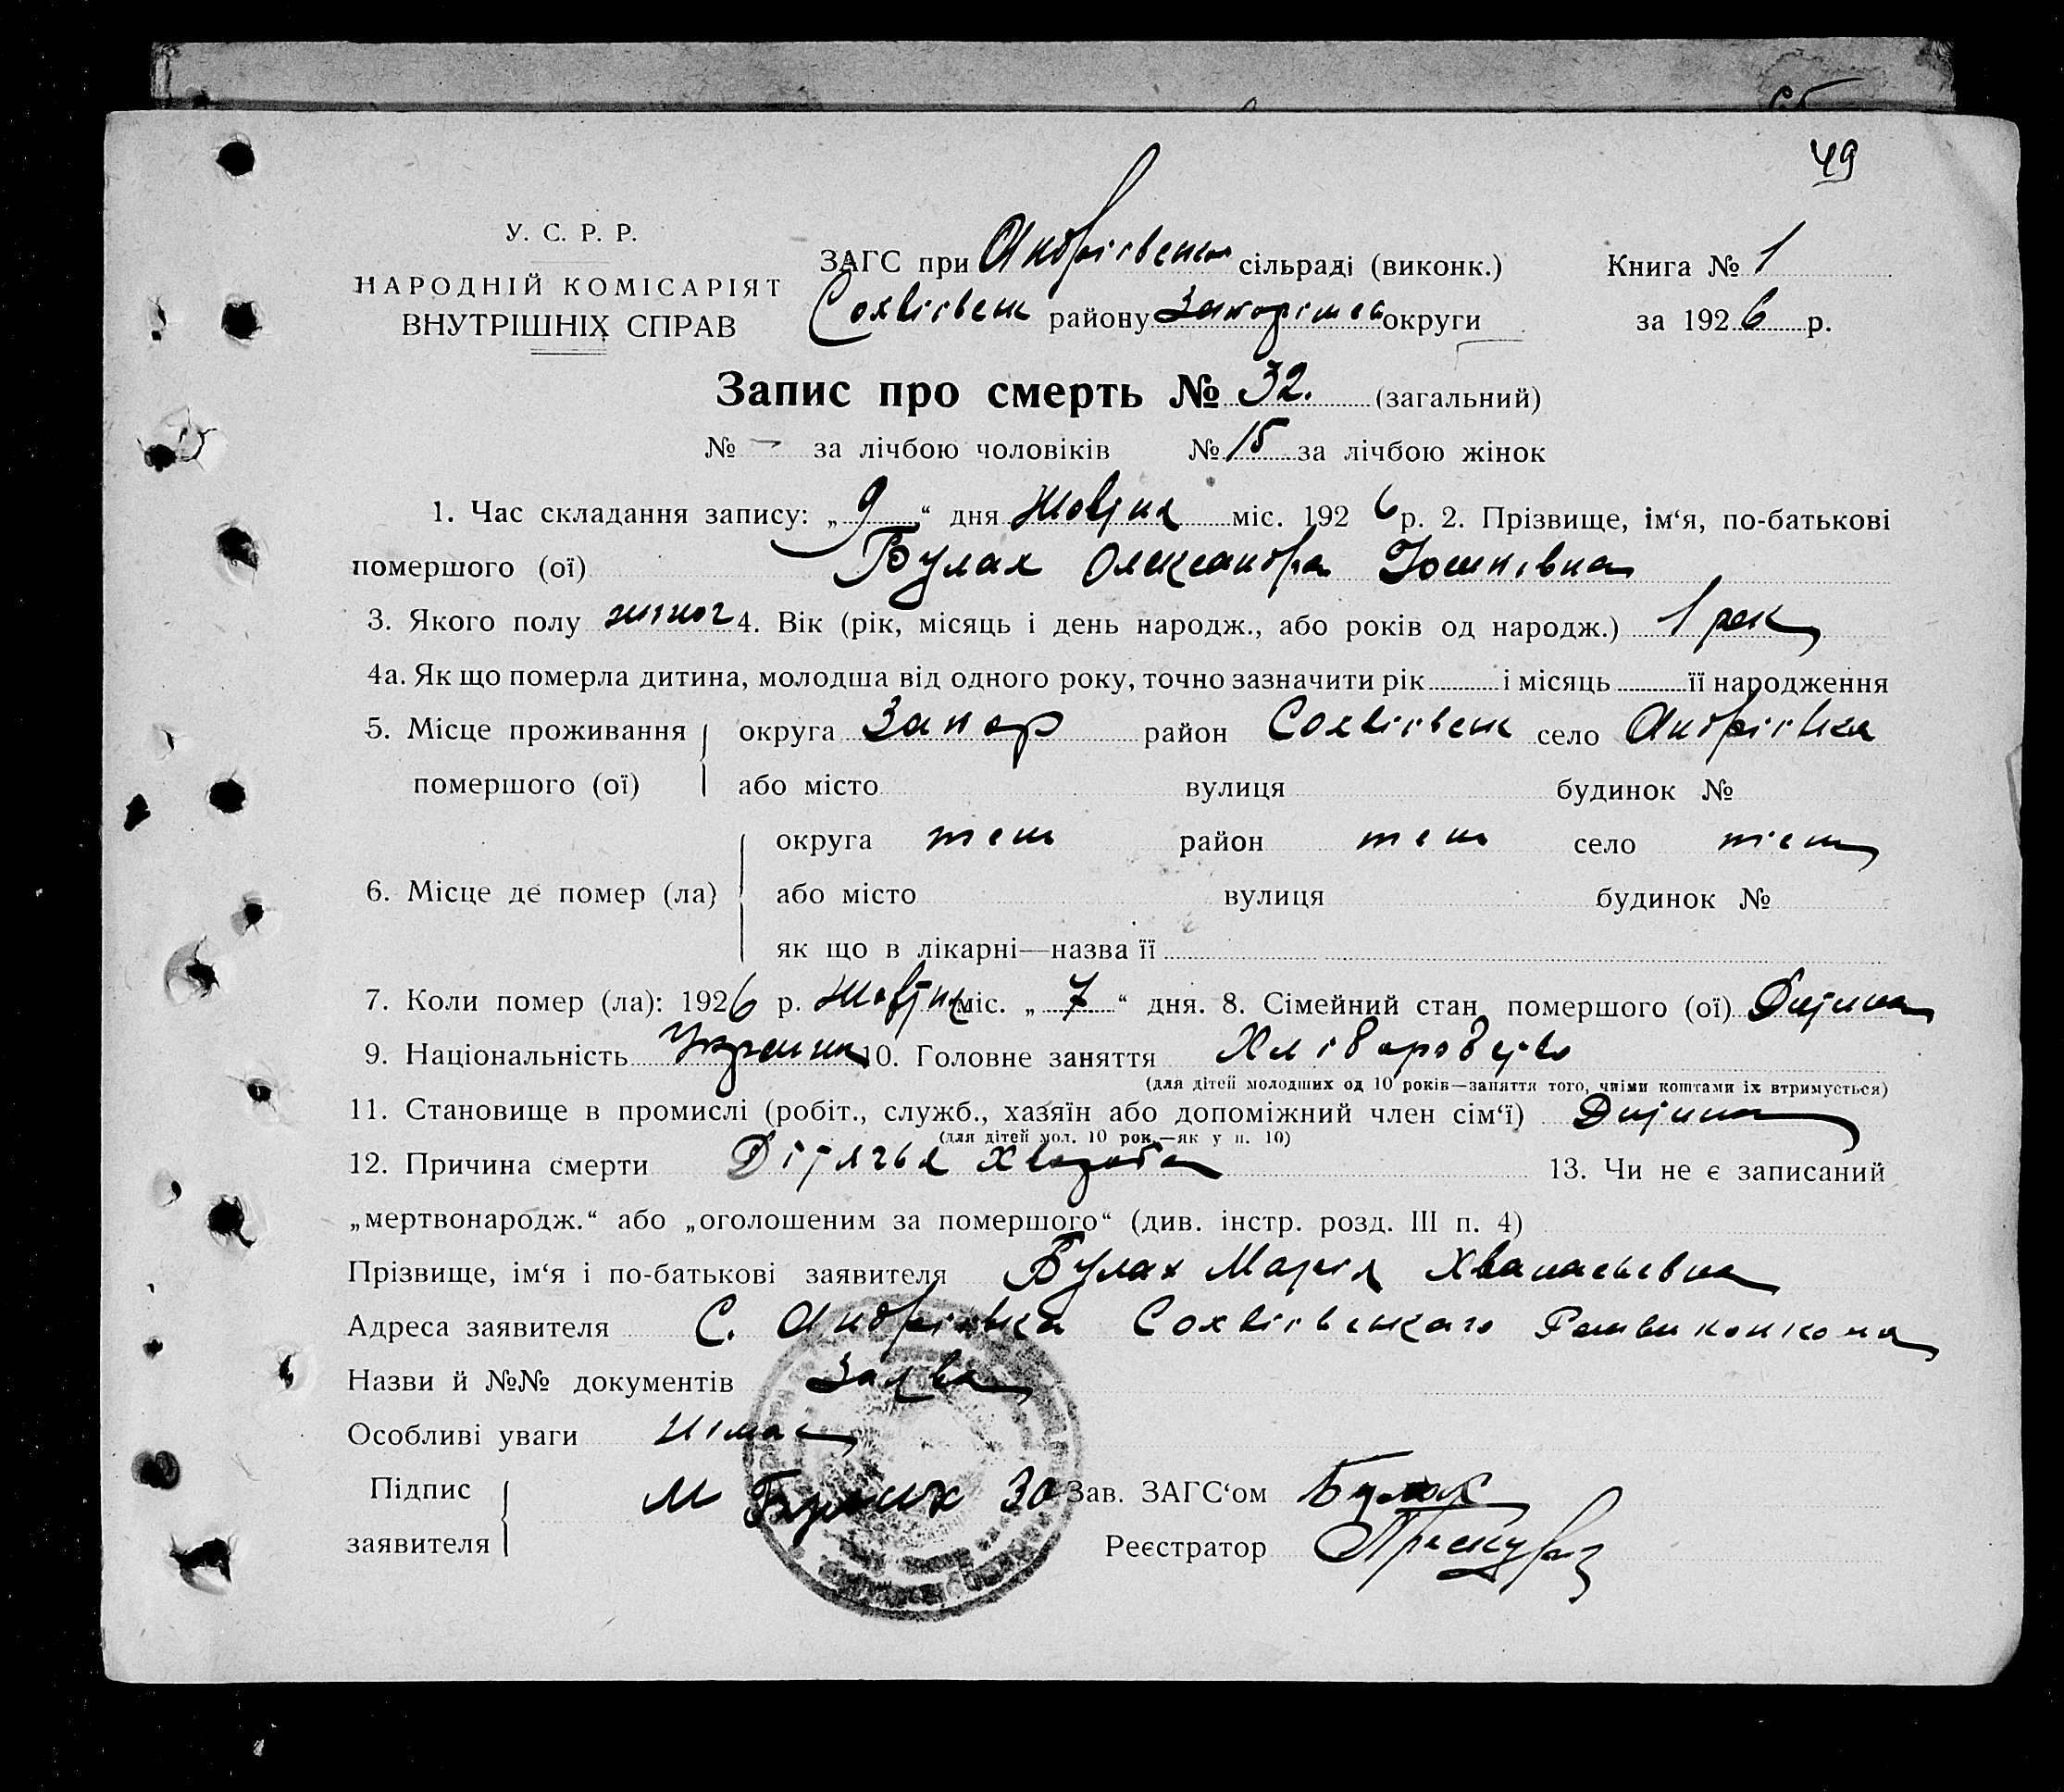 49
У. С. Р. Р.
НАРОДНІЙ КОМІСАРІЯТ
ВНУТРІШНІХ СПРАВ
ЗАГС при Андріівськ сільраді (виконк.)
Софіівськ району Запоріжськ округи
Книга № 1
за 1926 р.
Запис про смерть № 32. (загальний)
№ — за лічбою чоловіків № 15 за лічбою жінок
1. Час складання запису: „9“ дня Жовтня міс. 1926 р. 2. Прізвище, ім‘я, по-батькові
помершого (ої) Булах Олександра
3. Якого полу жіноч 4. Вік (рік, місяць і день народж., або років од народж.) 1 рок
4а. Як що померла дитина, молодша від одного року, точно зазначити рік і місяць її народження
5. Місце проживання округа Запор район Сохвіівськ село Андріівка
помершого (ої) або місто вулиця будинок №
округа теж район теж село теж
6. Місце де помер (ла) або місто вулиця будинок №
як що в лікарні—назва її
7. Коли помер (ла): 1926 р. Жовтня міс. „7“ дня. 8. Сімейний стан помершого (ої) Дитина
9. Національність Украінка 10. Головне заняття Хліборобство
(для дітей молодших од 10 років—заняття того, чиїми коштами їх втримується)
11. Становище в промислі (робіт., служб., хазяїн або допоміжний член сім‘ї) Дитина
(для дітей мол. 10 рок.—як у п. 10)
12. Причина смерти Дітячья хвороба 13. Чи не є записаний
„мертвонародж.“ або „оголошеним за помершого“ (див. інстр. розд. III п. 4)
Прізвище, ім‘я і по-батькові заявителя Булах Марія Хванасьевна
Адреса заявителя С. Андріівка Сохвіівського Райвиконкома
Назви й №№ документів Заява
Особливі уваги Німає
Підпис
заявителя М Булах
За Зав. ЗАГС‘ом Булах
Реєстратор